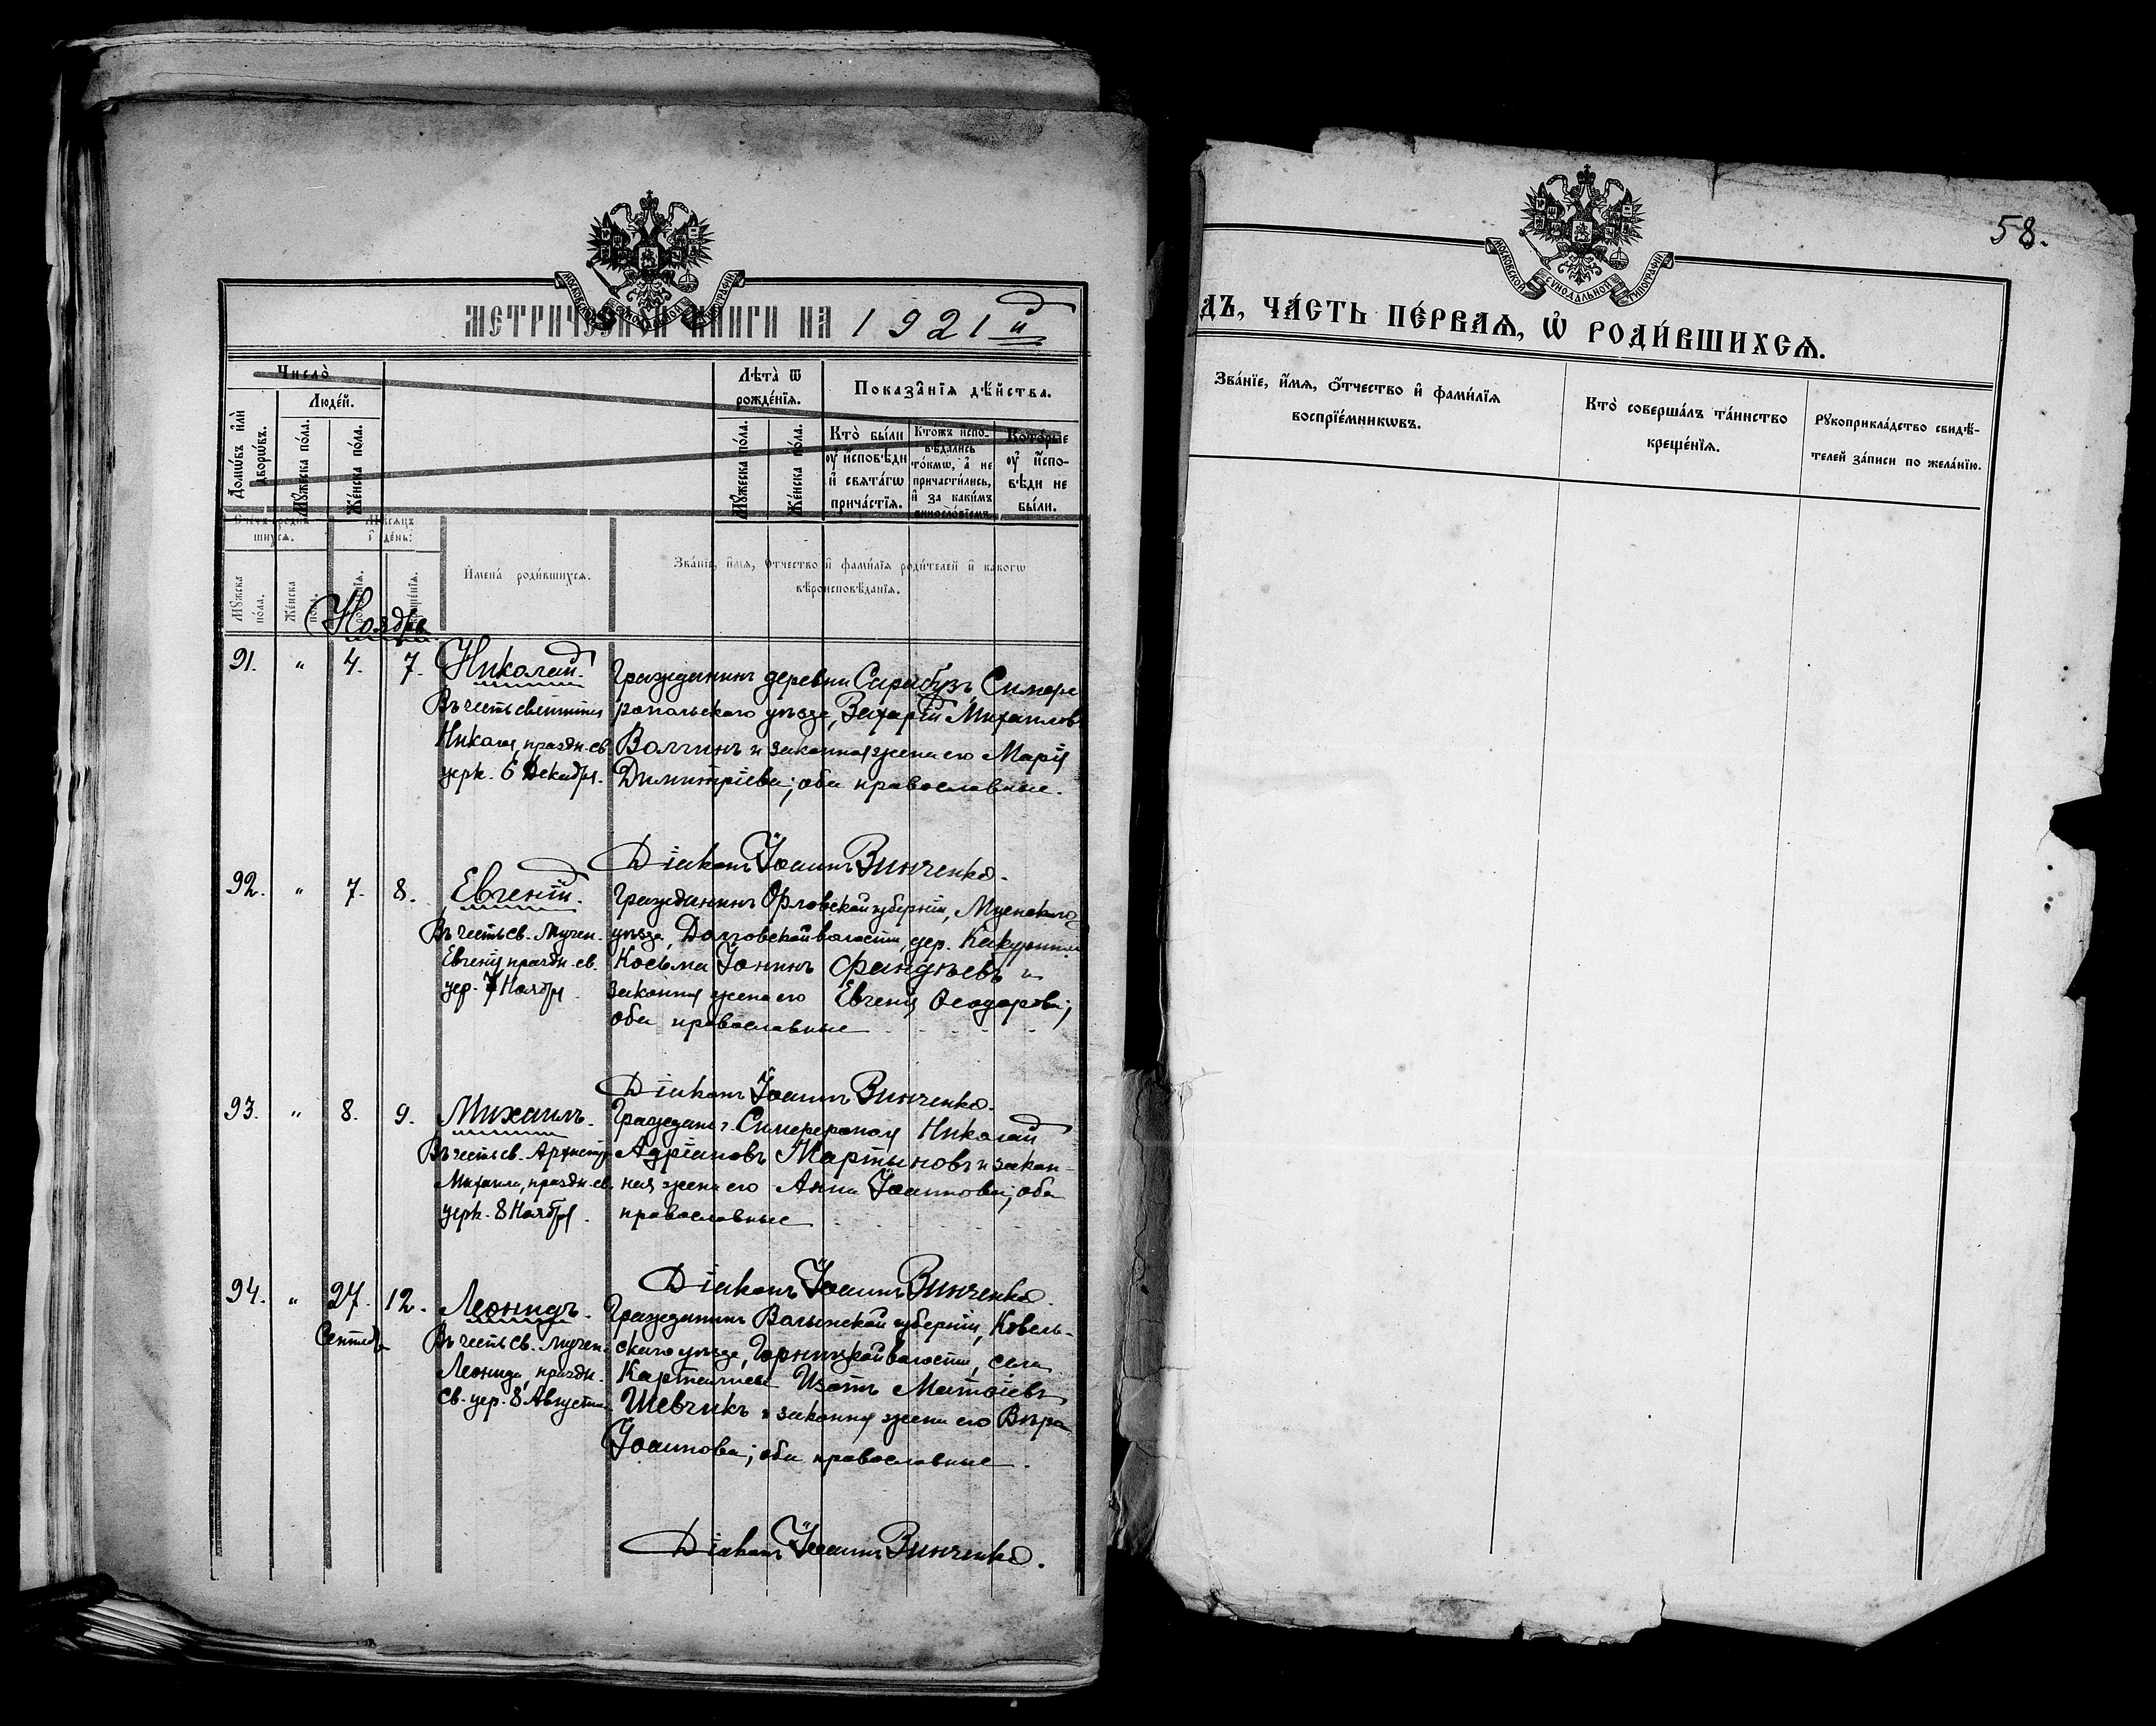 МЕТРИЧЕСКОЙ КНИГИ НА 1921й
Число̀
Домѡ́въ и҆лѝ дворѡ́въ.
Люде́й.
Мꙋ́жеска по́ла.
Же́нска по́ла.
Лѣта̀ ѿ рожде́нїѧ.
Мꙋ́жеска по́ла.
Же́нска по́ла.
Показа̑нїѧ дѣ́йства.
Кто̀ бы́ли
ᲂу҆ и҆́сповѣди
и҆ свѧта́гѡ
прича́стїѧ.
Кто́жъ и҆спо-
вѣ́дались
то́кмѡ, а҆ не
причасти́лись,
и҆ за каки́мъ
виносло́вїемъ.
Кото́рые
ᲂу҆ и҆́спо-
вѣди не
бы́ли.
Сче́тъ роди́в-
шихсѧ.
Мꙋ́жска по́ла.
Же́нска по́ла.
Мѣ́сѧцъ
и҆ де́нь:
рожде́нїѧ.
креще́нїѧ.
И҆мена̀ роди́вшихсѧ.
Зва́нїе, и҆́мѧ, ѻ҆́тчество и҆ фами́лїѧ роди́телей и҆ како́гѡ
вѣроисповѣ́данїѧ.
Ноябрь
91. " 4. 7. Николай.
Въ честь святителя
Николая, праздн. св.
церк. 6 Декабря.
Гражданинъ деревни Сарабузъ, Симфе
ропольскаго уѣзда, Захарій Михаиловъ
Волгинъ и законная жена его Марія
Димитріева; оба православные.
Діаконъ Іоаннъ Винченко.
92. " 7. 8. Евгеній.
Въ честь св. Мучен.
Евгенія праздн. св.
цер. 7 Ноября.
Гражданинъ Орловской губерніи, Мценскаго
уѣзда, волости, дер.
Косьма Іонинъ Фандѣевъ и
законная жена его Евгенія Ѳеодорова;
оба православные
Діаконъ Іоаннъ Винченко.
93. " 8. 9. Михаилъ.
Въ честь св. Архистр.
Михаила, праздн. св.
церк. 8 Ноября.
Граждан. г. Симферополя Николай
Адріановъ Мартыновъ и закон-
ная жена его Анна Іоаннова; оба
православные
Діаконъ Іоаннъ Винченко.
94. " 27. 12. Леонидъ.
Сентяб.
Въ честь св. мучен.
Леонида, праздн.
св. цер. 8 Августа.
Гражданинъ Волынской губерніи, Ковель-
скаго уѣзда, волости, села
Изотъ Матвіевъ
Шевчикъ и законная жена его Вѣра
Іоаннова; оба православные.
Діаконъ Іоаннъ Винченко.
58.
МОСКОВСКОЙ СѴНОДАЛЬНОЙ ТИПОГРАФІИ
ДЪ, ЧА́СТЬ ПЕ́РВАѦ, Ѽ РОДИ́ВШИХСѦ.
Зва́нїе, и҆́мѧ, ѻ҆́тчество и҆ фами́лїѧ
воспрїе́мникѡвъ.
Кто̀ соверша́лъ та́инство
креще́нїѧ.
Рꙋкоприкла́дство свидѣ́-
телей за́писи по жела́нїю.